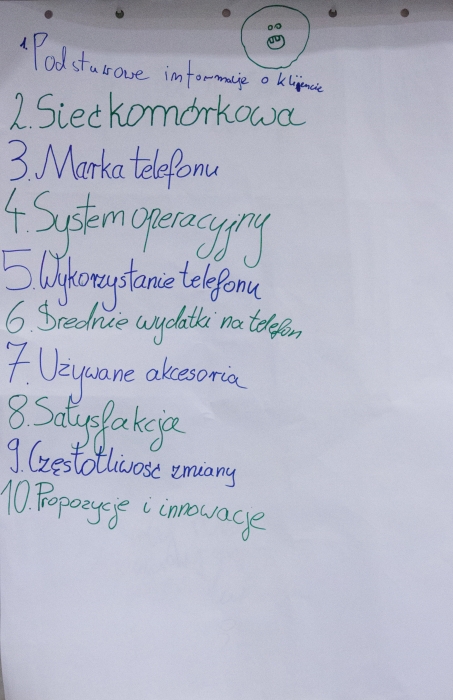 1. Podstawowe informacje o klijencie
2. Sieć komórkowa
3. Marka telefonu
4. System operacyjny
5. Wykorzystanie telefonu
6. Średnie wydatki na telefon
7. Używane akcesoria
8. Satysfakcja
9. Częstotliwość zmiany
10. Propozycje i innowacje